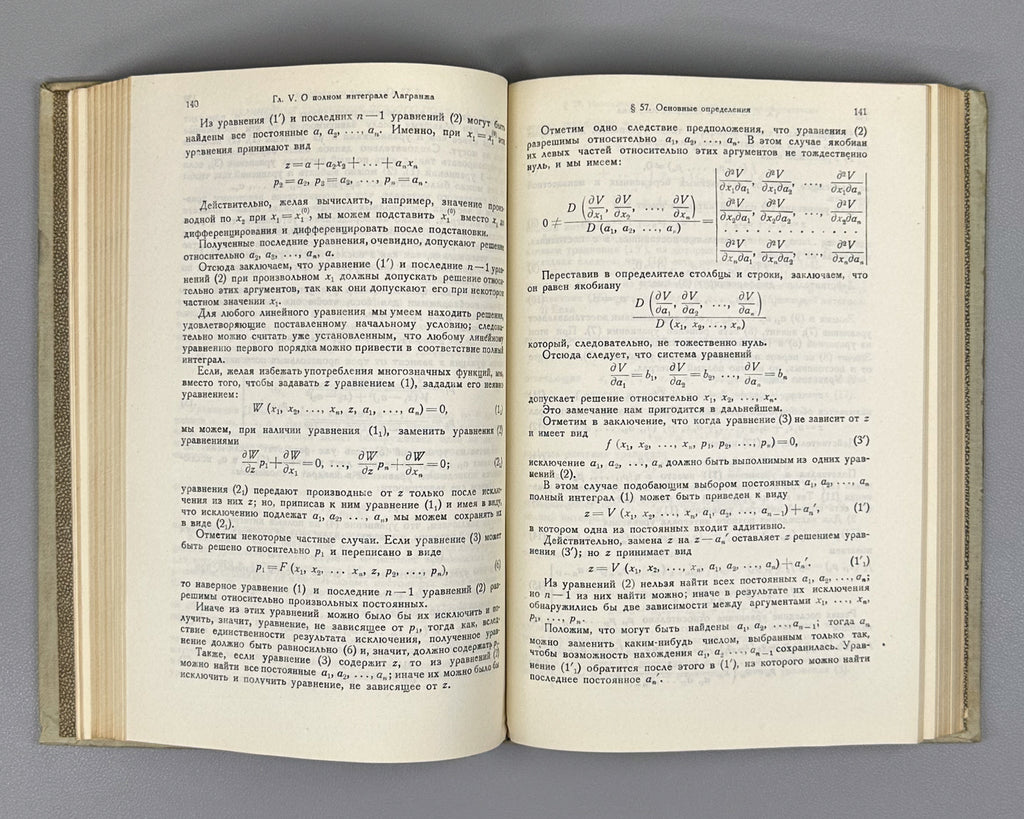 140
Гл. V. О полном интеграле Лагранжа
Из уравнения (1′) и последних n — 1 уравнений (2) могут быть
найдены все постоянные a, a₂, ..., aₙ. Именно, при x₁ = x₁⁽⁰⁾ эти
уравнения принимают вид
z = a + a₂x₂ + ... + aₙxₙ
p₂ = a₂, p₃ = a₃, ..., pₙ = aₙ.
Действительно, желая вычислить, например, значение произ-
водной по x₂ при x₁ = x₁⁽⁰⁾, мы можем подставить x₁⁽⁰⁾ вместо x₁ до
дифференцирования и дифференцировать после подстановки.
Полученные последние уравнения, очевидно, допускают решение
относительно a₂, a₃, ..., aₙ, a.
Отсюда заключаем, что уравнение (1′) и последние n — 1 урав-
нений (2) при произвольном x₁ должны допускать решение относи-
тельно этих аргументов, так как они допускают его при некотором
частном значении x₁.
Для любого линейного уравнения мы умеем находить решения,
удовлетворяющие поставленному начальному условию; следова-
тельно можно считать уже установленным, что любому линейному
уравнению первого порядка можно привести в соответствие полный
интеграл.
Если, желая избежать употребления многозначных функций, мы,
вместо того, чтобы задавать z уравнением (1), зададим его неявно
уравнением:
W (x₁, x₂, ..., xₙ, z, a₁, ..., aₙ) = 0, (1₁)
мы можем, при наличии уравнения (1₁), заменить уравнения (2)
уравнениями
∂W/∂z p₁ + ∂W/∂x₁ = 0, ..., ∂W/∂z pₙ + ∂W/∂xₙ = 0; (2₁)
уравнения (2₁) передают производные от z только после исклю-
чения из них z; но, приписав к ним уравнение (1₁) и имея в виду,
что исключению подлежат a₁, a₂, ..., aₙ, мы можем сохранять их
в виде (2₁).
Отметим некоторые частные случаи. Если уравнение (3) может
быть решено относительно p₁ и переписано в виде
p₁ = F (x₁, x₂, ... xₙ, z, p₂, ..., pₙ), (6)
то наверное уравнение (1) и последние n — 1 уравнений (2) раз-
решимы относительно произвольных постоянных.
Иначе из этих уравнений можно было бы их исключить и по-
лучить, значит, уравнение, не зависящее от p₁, тогда как, вслед-
ствие единственности результата исключения, полученное урав-
нение должно быть равносильно (6) и, значит, должно содержать p₁.
Также, если уравнение (3) содержит z, то из уравнений (2)
можно найти все постоянные a₁, a₂, ..., aₙ; иначе их можно было бы
исключить и получить уравнение, не зависящее от z.
§ 57. Основные определения
141
Отметим одно следствие предположения, что уравнения (2)
разрешимы относительно a₁, a₂, ..., aₙ. В этом случае якобиан
их левых частей относительно этих аргументов не тождественно
нуль, и мы имеем:
0 ≠ D (∂V/∂x₁, ∂V/∂x₂, ..., ∂V/∂xₙ) / D (a₁, a₂, ..., aₙ) =
| ∂²V/∂x₁∂a₁, ∂²V/∂x₁∂a₂, ..., ∂²V/∂x₁∂aₙ |
| ∂²V/∂x₂∂a₁, ∂²V/∂x₂∂a₂, ..., ∂²V/∂x₂∂aₙ |
| . . . . . . . . . . . . . |
| ∂²V/∂xₙ∂a₁, ∂²V/∂xₙ∂a₂, ..., ∂²V/∂xₙ∂aₙ |
Переставив в определителе столбцы и строки, заключаем, что
он равен якобиану
D (∂V/∂a₁, ∂V/∂a₂, ..., ∂V/∂aₙ) / D (x₁, x₂, ..., xₙ)
который, следовательно, не тожественно нуль.
Отсюда следует, что система уравнений
∂V/∂a₁ = b₁, ∂V/∂a₂ = b₂, ..., ∂V/∂aₙ = bₙ
допускает решение относительно x₁, x₂, ..., xₙ.
Это замечание нам пригодится в дальнейшем.
Отметим в заключение, что когда уравнение (3) не зависит от z
и имеет вид
f (x₁, x₂, ..., xₙ, p₁, p₂, ..., pₙ) = 0, (3′)
исключение a₁, a₂, ..., aₙ должно быть выполнимым из одних урав-
нений (2).
В этом случае подобающим выбором постоянных a₁, a₂, ..., aₙ
полный интеграл (1) может быть приведен к виду
z = V (x₁, x₂, ..., xₙ, a₁, a₂, ..., aₙ₋₁) + aₙ′, (1′)
в котором одна из постоянных входит аддитивно.
Действительно, замена z на z — aₙ′ оставляет z решением урав-
нения (3′); но z принимает вид
z = V (x₁, x₂, ..., xₙ, a₁, a₂, ..., aₙ) + aₙ′. (1′₁)
Из уравнений (2) нельзя найти всех постоянных a₁, a₂, ..., aₙ;
но n — 1 из них найти можно; иначе в результате их исключения
обнаружились бы две зависимости между аргументами x₁, ..., xₙ,
p₁, ..., pₙ.
Положим, что могут быть найдены a₁, a₂, ..., aₙ₋₁; тогда aₙ
можно заменить каким-нибудь числом, выбранным только так,
чтобы возможность нахождения a₁, a₂ ..., aₙ₋₁ сохранилась. Урав-
нение (1′₁) обратится после этого в (1′), из которого можно найти
последнее постоянное aₙ′.